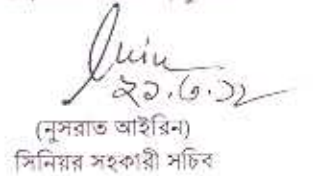 ২১.৩.১২
(নুসরাত আইরিন)
সিনিয়র সহকারী সচিব